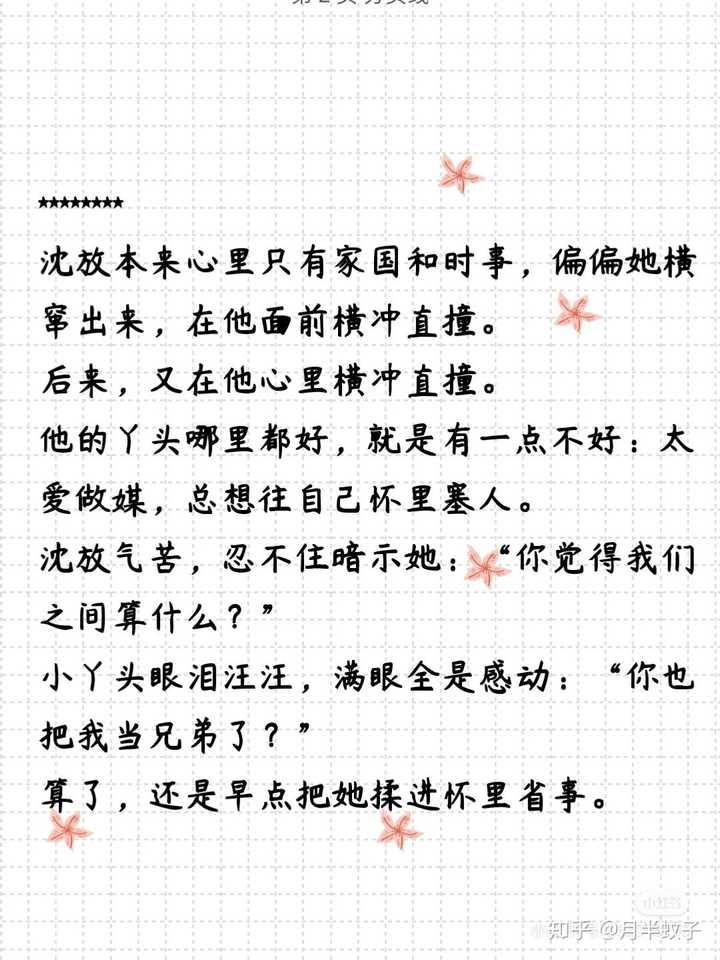 ********
沈放本来心里只有家国和时事，偏偏她横
窜出来，在他面前横冲直撞。
后来，又在他心里横冲直撞。
他的丫头哪里都好，就是有一点不好：太
爱做媒，总想往自己怀里塞人。
沈放气苦，忍不住暗示她：“你觉得我们
之间算什么？”
小丫头眼泪汪汪，满眼全是感动：“你也
把我当兄弟了？”
算了，还是早点把她揉进怀里省事。
小红书
知乎 @月半蚊子